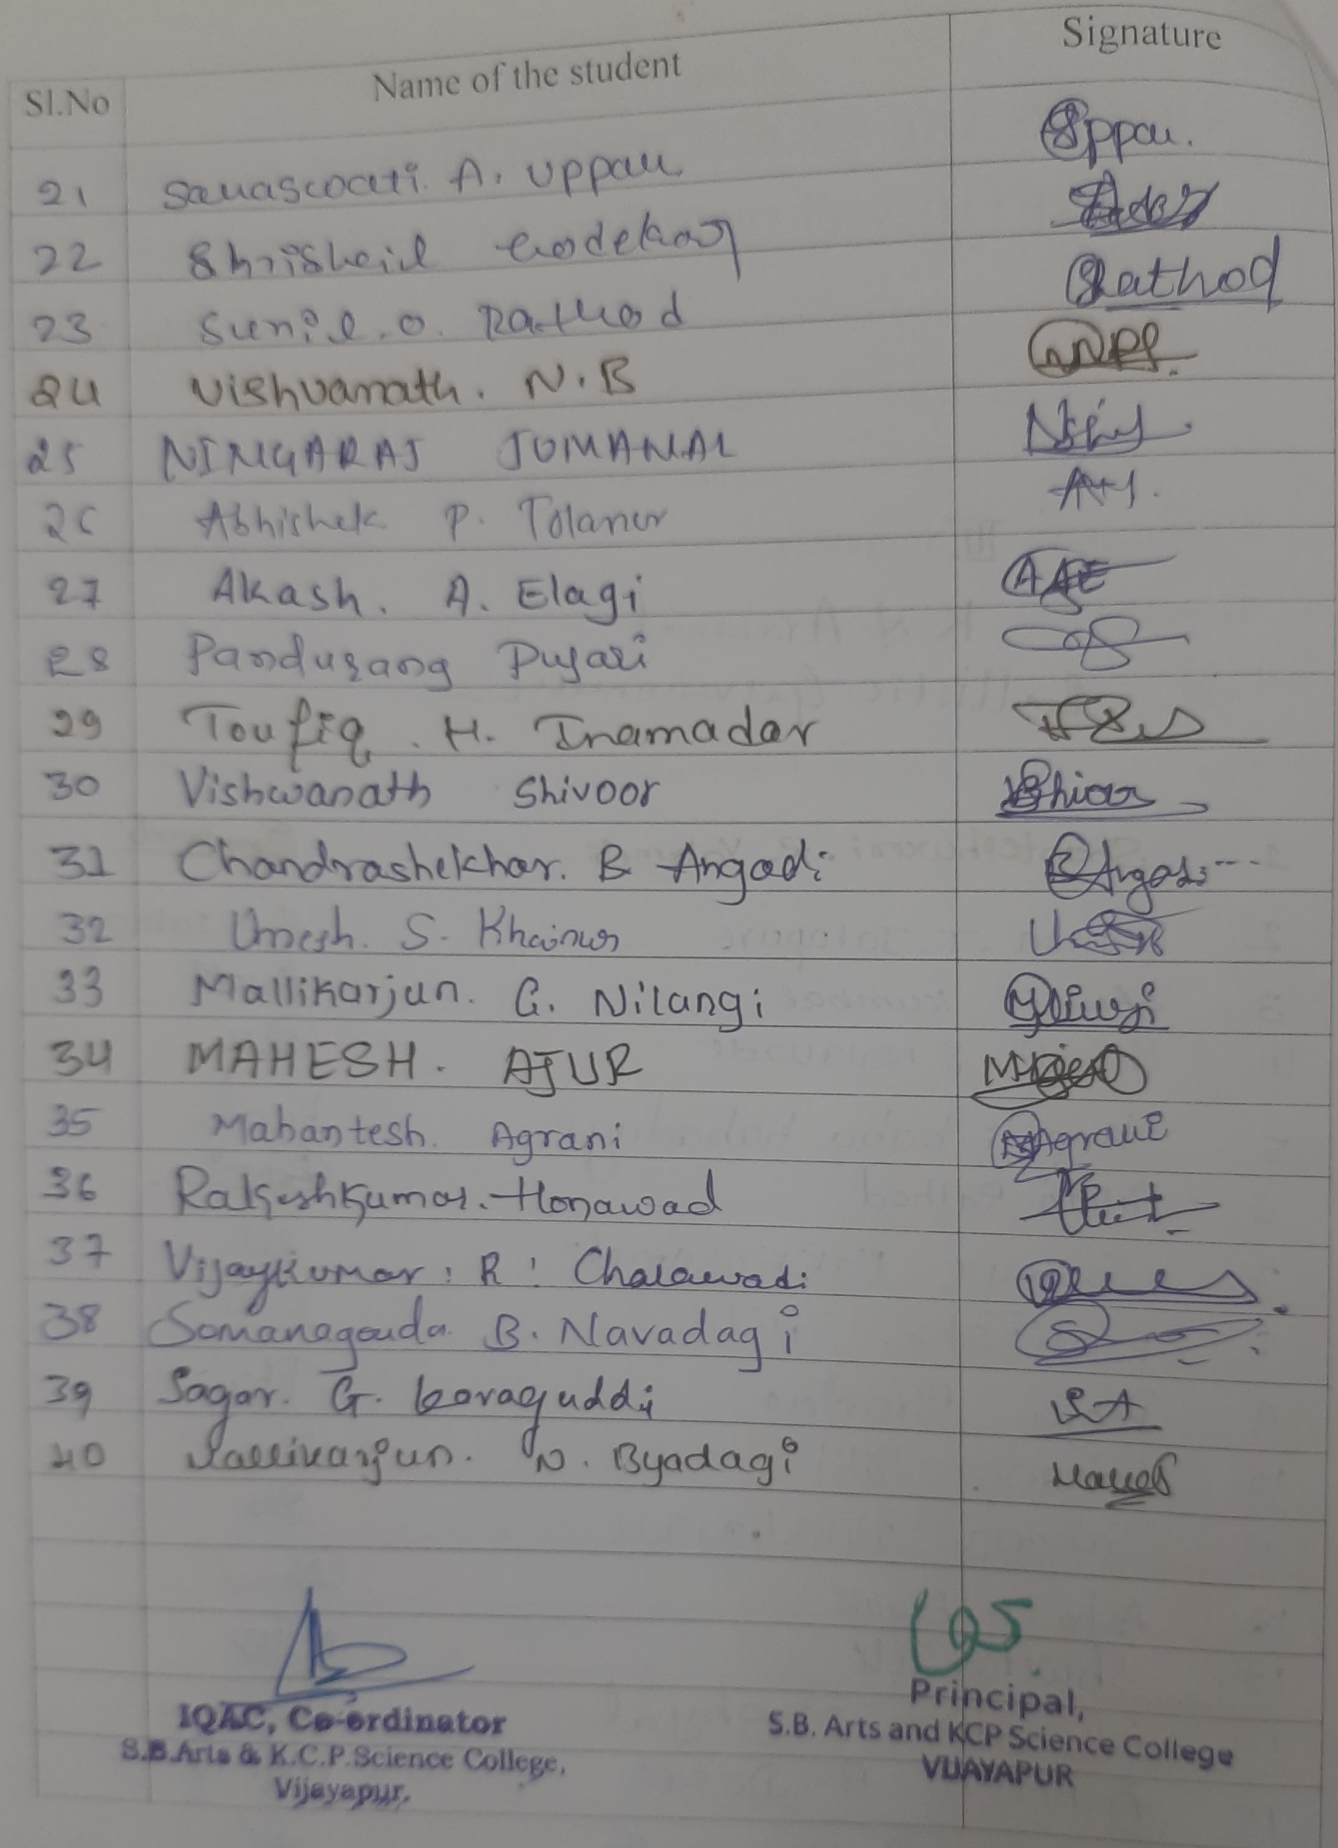 Sl.No Name of the student Signature
21 Sauascoati. A. Uppau Sppau.
22 Shrishail Godekar
23 Sunil. O. Rathod Rathod
24 Vishvanath. N.B
25 NINGARAJ JUMANAL
26 Abhishek P. Tolanur
27 Akash. A. Elagi AAE
28 Pandurang Pujari
29 Toufiq. H. Inamadar
30 Vishwanath Shivoor
31 Chandrashekhar. B Angadi BAngadi
32 Umesh. S. Khainur
33 Mallikarjun. G. Nilangi
34 MAHESH. AJUR
35 Mahantesh. Agrani MAgrani
36 Rakeshkumar. Honawad
37 Vijaykumar: R: Chalawadi
38 Somanagouda B. Navadagi
39 Sagar. G. koraguddi SA
40 Mallikarjun. N. Byadagi
IQAC, Co-ordinator
S.B.Arts & K.C.P.Science College,
Vijayapur.
Principal,
S.B. Arts and KCP Science College
VIJAYAPUR